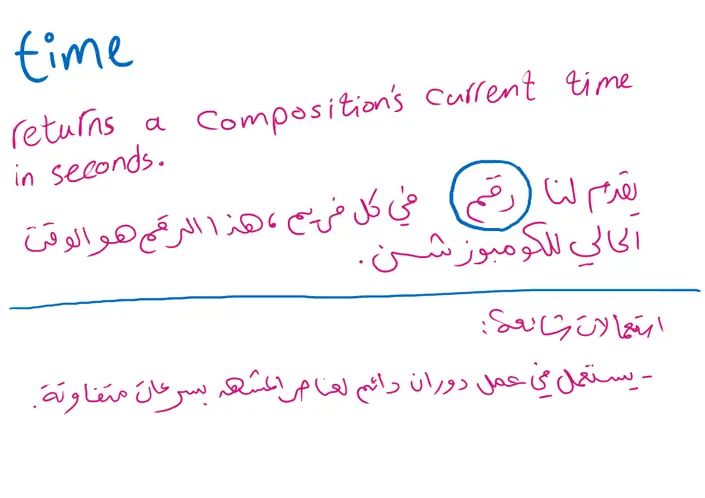 time
returns a composition's current time
in seconds.
يقدم لنا رقم في كل فريم، هذا الرقم هو الوقت
الحالي للكومبوزشن.
استعمالات شائعة:
- يستعمل في عمل دوران دائم لعناصر المشهد بسرعات متفاوتة.